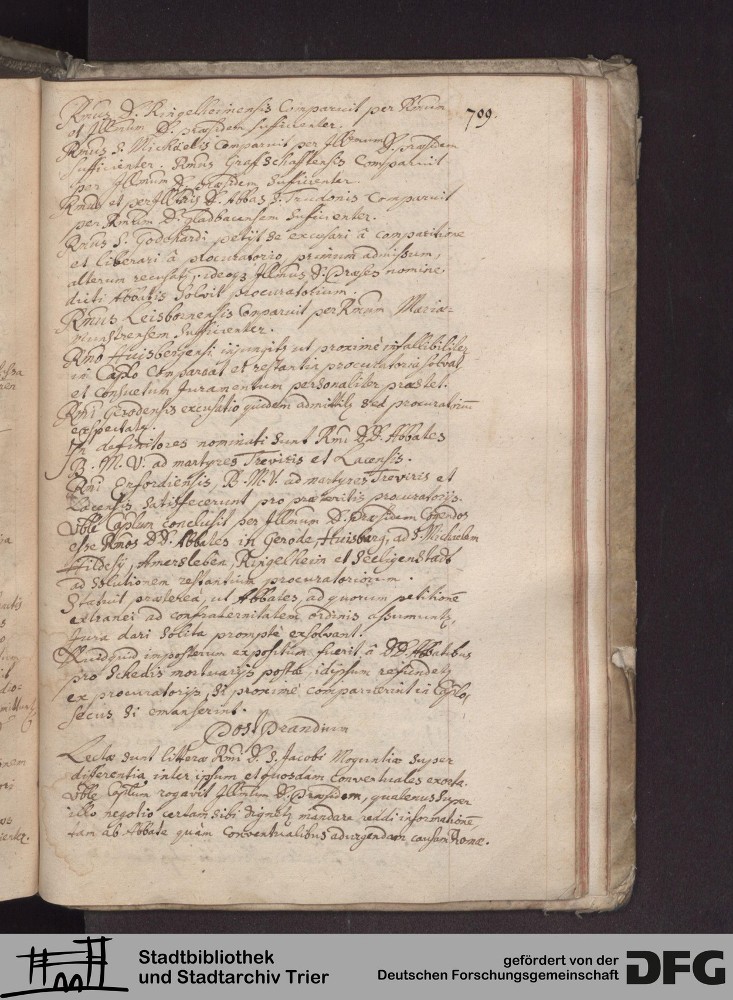 709.
Rmus D. Ringelheimensis Comparuit per Rmum
et Illmum D. præsidem sufficienter.
Rmus S. Michaëlis Comparuit per Illmum D. præsidem
sufficienter. Rmus Grafschaftensis Comparuit
per Illmum D. præsidem sufficienter.
Rmus et perIllris D. Abbas S. Trudonis Comparuit
per Rmum D. Gladbacensem sufficienter.
Rmus S. Godehardi petijt se excusari à comparitione
et liberari à procuratorio, primum admissum,
alterum recusatū, ideoq; Illmus D. Præses nomine
dicti Abbatis solvit procuratorium.
Rmus Leisbornensis Comparuit per Rmum Maria-
munstrensem sufficienter.
Rmo Huisbergensi injungitr ut proximè infallibiliter
in Caplo Compareat et restantia procuratoria solvat
et consuetum Juramentum personaliter præstet.
Rmi Gerodensis excusatio quidem admittitr sed procuratorium
expectatr.
In definitores nominati sunt Rmi DD. Abbates
B. M. V. ad martyres Treviris et Lacensis.
Rmi Erfordiensis, B. M. V. ad martyres Treviris et
Lacensis satisfecerunt pro præteritis procuratorijs.
Vble Caplum conclusit per Illmum D. Præsidem Cogendos
esse Rmos DD. Abbates in Gerode, Huisberg, ad S. Michaelem
Hildesij, Amersleben, Ringelheim et Seeligenstadt
ad solutionem restantium procuratoriorum.
Statuit præterea, ut Abbates, ad quorum petitionē
extranei ad confraternitatem ordinis assumuntr,
Jura dari solita promptè exsolvant.
Quidquid imposterum expositum fuerit à DD. Abbatibus
pro schedis mortuarijs posta, idipsum refundetr
ex procuratorijs, si proximè comparuerint in Caplo,
secus si emanserint.
Post Prandium
Lectæ sunt litteræ Rmi D. S. Jacobi Moguntiæ super
differentia inter ipsum et quosdam conventuales exorta.
Vble Caplum rogavit Illmum D. Præsidem, quatenus super
illo negotio certam sibi dignetr mandare reddi informationē
tam ab Abbate quam Conventualibus adurgendam causam Romæ.
Stadtbibliothek
und Stadtarchiv Trier
gefördert von der
Deutschen Forschungsgemeinschaft
DFG